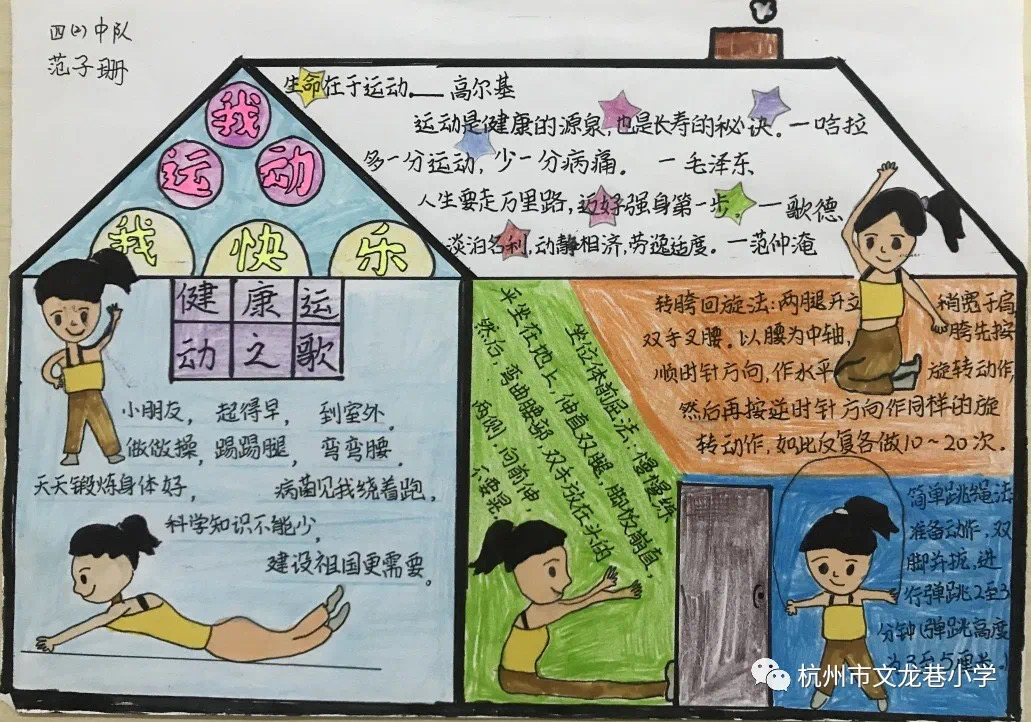 四(2)中队
范子珊
我
运动
我快乐
生命在于运动.——高尔基
运动是健康的源泉,也是长寿的秘诀。—哈拉
多一分运动,少一分病痛。—毛泽东
人生要走万里路,迈好强身第一步。—歌德
淡泊名利,动静相济,劳逸适度。—范仲淹
健康运
动之歌
小朋友,起得早,到室外。
做做操,踢踢腿,弯弯腰。
天天锻炼身体好,病菌见我绕着跑,
科学知识不能少,
建设祖国更需要。
坐位体前屈法:慢慢练
平坐在地上,伸直双腿,脚放前直,
然后,弯曲腰部,双手放在头的
两侧,向前伸,
不要
转胯回旋法:两腿开立 稍宽于肩
双手叉腰。以腰为中轴, 胯先按
顺时针方向,作水平 旋转动作,
然后再按逆时针方向作同样的旋
转动作,如比反复各做10~20次.
简单跳绳法
准备动作,双
脚并拢,进
行弹跳,2至3
分钟(弹跳高度
3至5厘米。
杭州市文龙巷小学